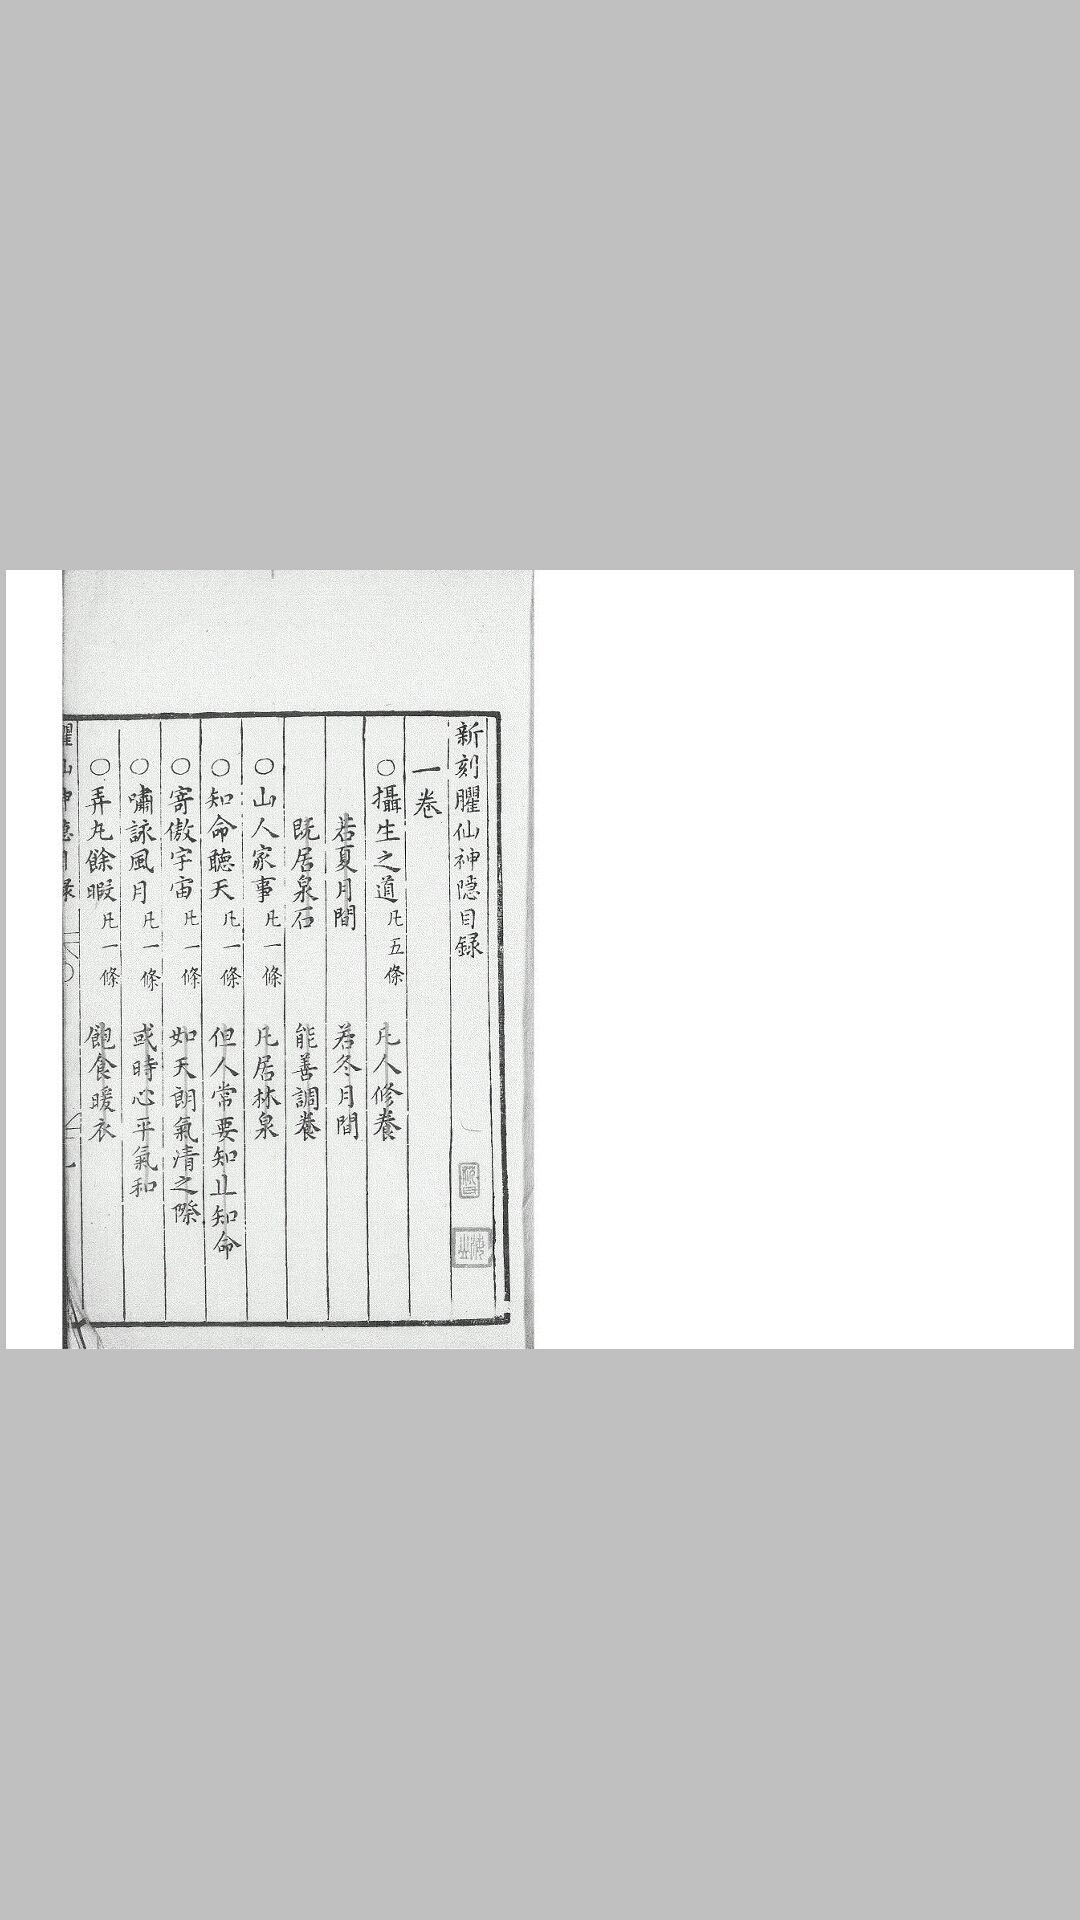 新刻臞仙神隱目録
一卷
○攝生之道 凡五條 凡人修養
若夏月間 若冬月間
既居泉石 能善調養
○山人家事 凡一條 凡居林泉
○知命聽天 凡一條 但人常要知止知命
○寄傲宇宙 凡一條 如天朗氣清之際
○嘯詠風月 凡一條 或時心平氣和
○弄丸餘暇 凡一條 飽食暖衣